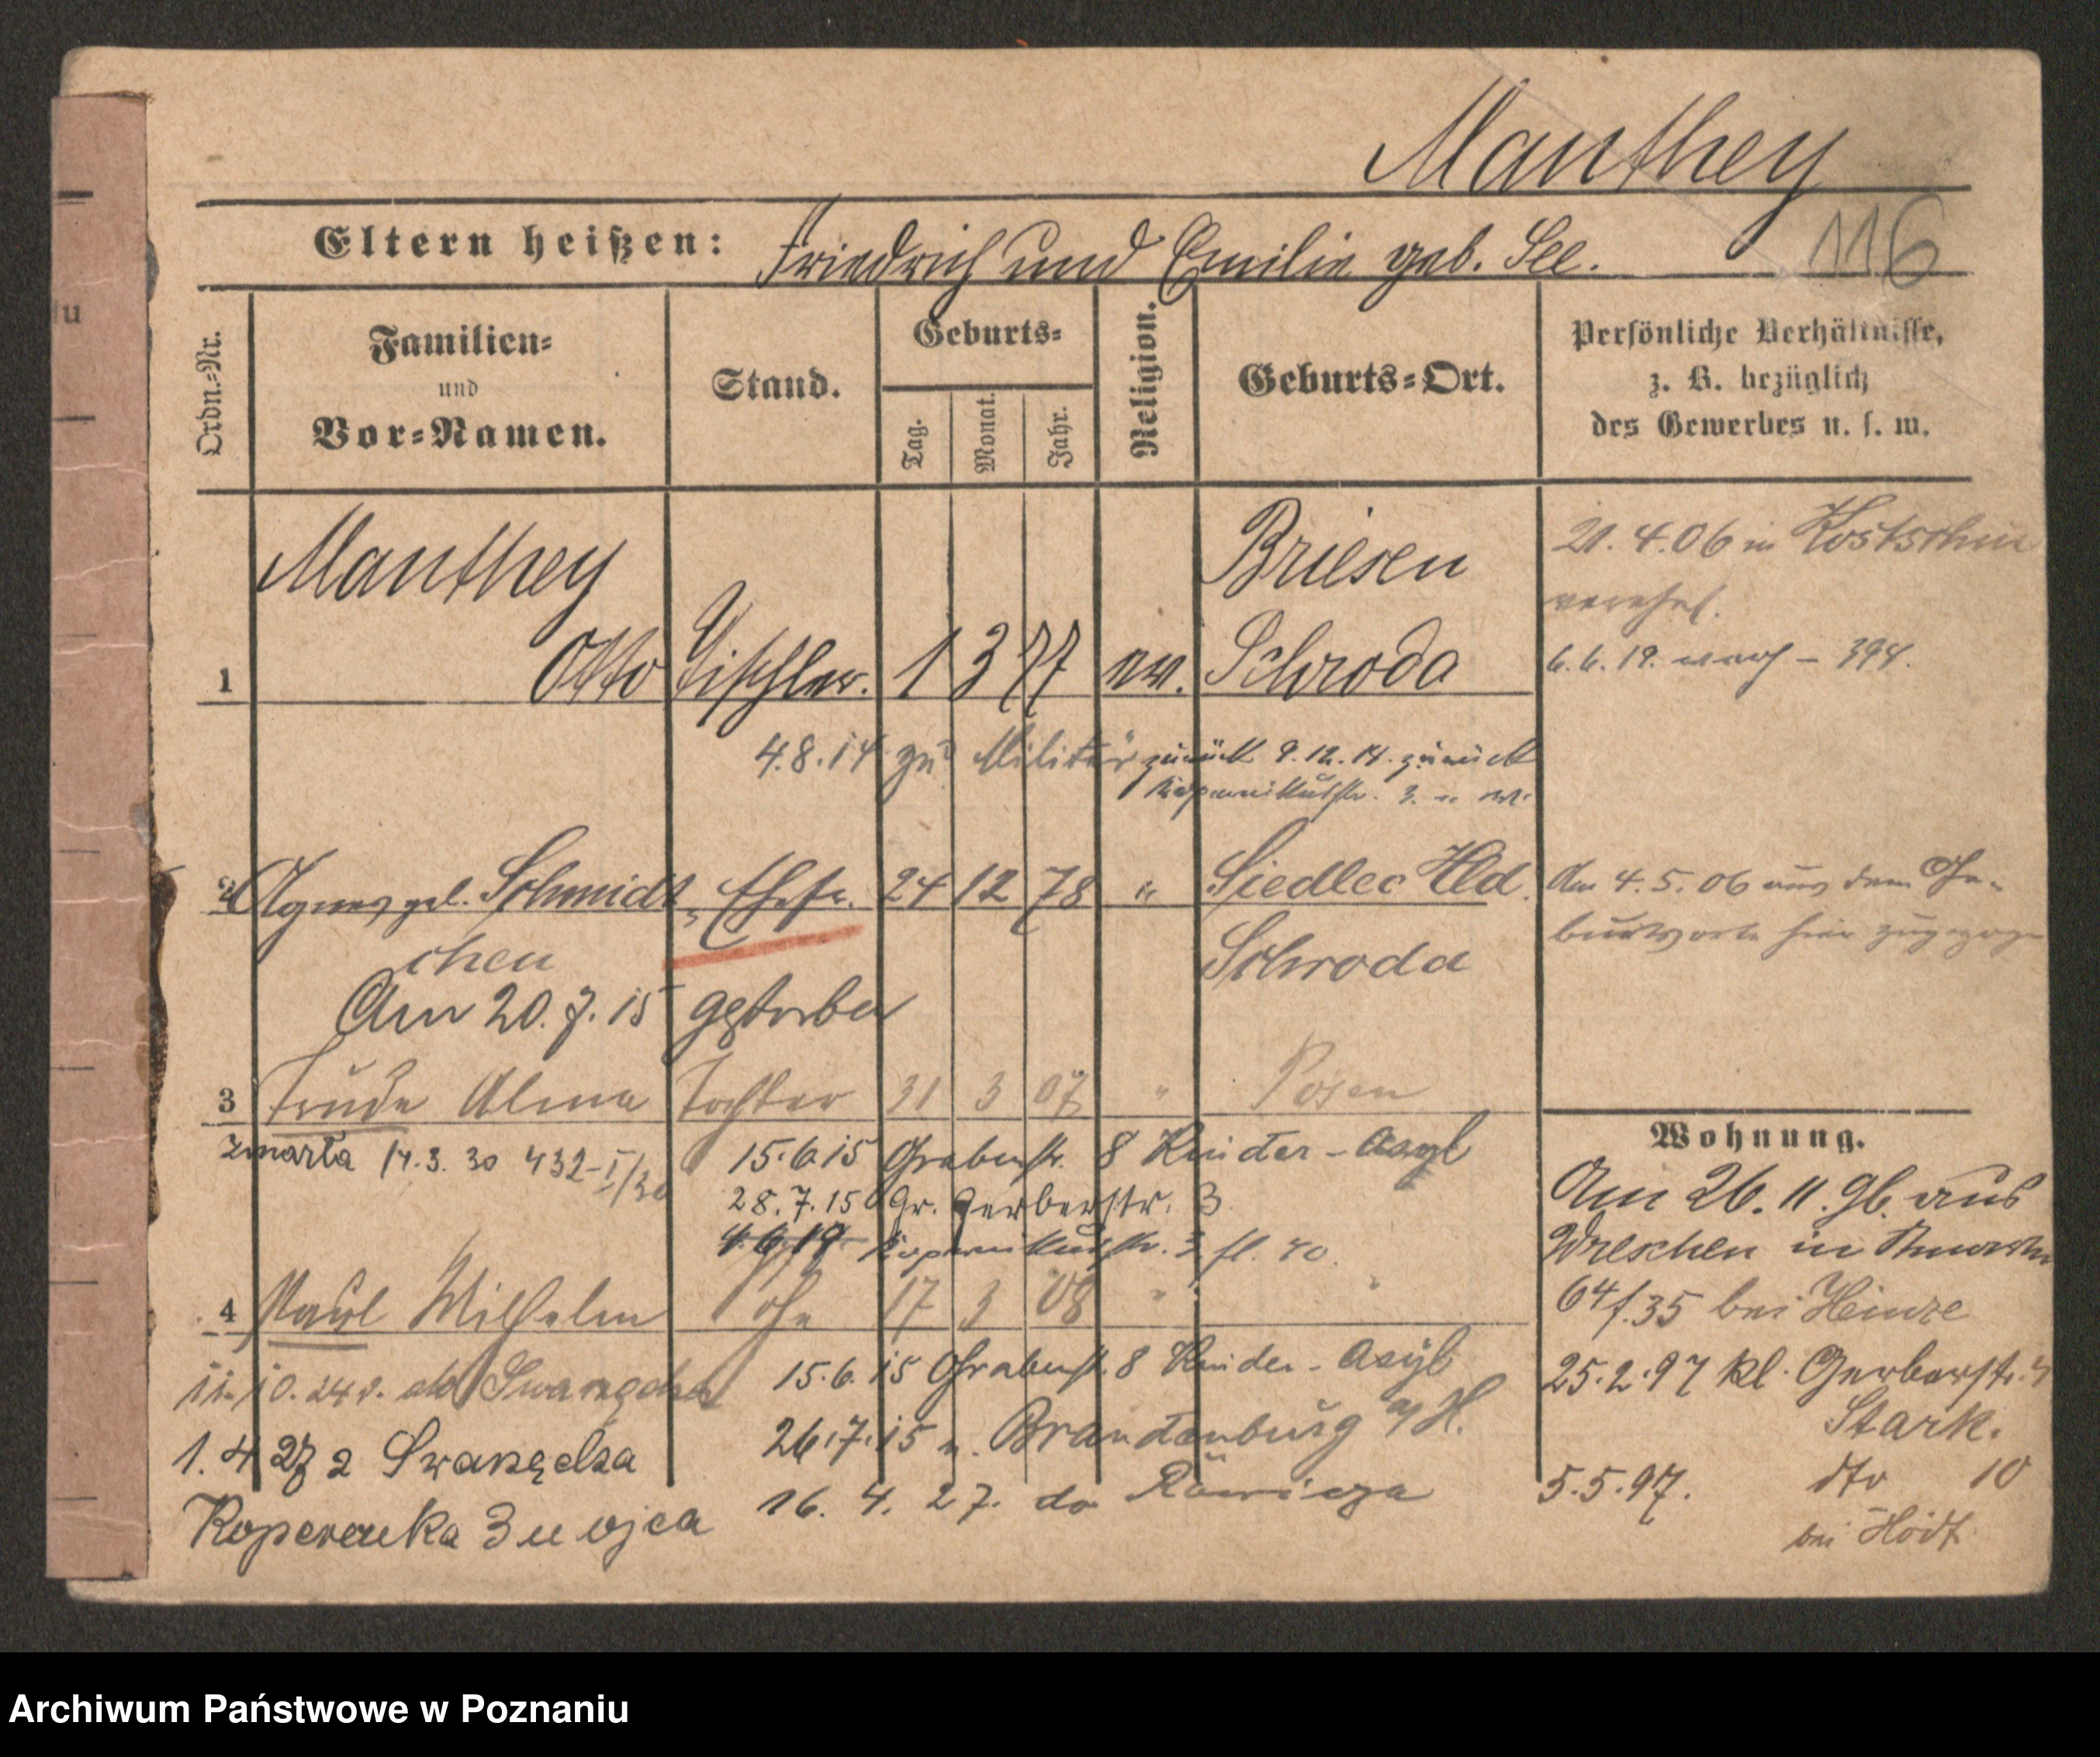 Manthey
116
Eltern heißen: Friedrich und Emilie geb. See.
Ordn.=Nr.
Familien=
und
Vor=Namen.
Stand.
Geburts=
Tag. Monat. Jahr.
Religion.
Geburts=Ort.
Persönliche Verhältnisse,
z. B. bezüglich
des Gewerbes u. s. w.
Manthey Briesen
1 Otto Tischler. 1 3 77 ev. Schroda
21. 4. 06 in Kostschin
verehel.
6. 6. 19.
4.8.14 zu Militär zurück 9.12.14. zurück
Kopernikusstr. 3.
2 Agnes geb. Schmidt Ehefr. 24 12 78 " Siedlec Hld.
chen Schroda
Am 4. 5. 06 aus dem Ge-
burtsorte hier zugezogen
Am 20. 7. 15 gestorben
3 Trude Alma Tochter 31 3 07 " Posen
zmarła 14.3.30 432-I/30
15.6.15 Grabenstr. 8 Kinder-Asyl
28.7.15 Gr. Gerberstr. 3
4.6.19 Kopernikusstr. 3
4 Paul Wilhelm 17 3 08 " "
15.6.15 Grabenstr. 8 Kinder-Asyl
26.7.15 n. Brandenburg a/H.
16. 4. 27. do Rawicza
do Swarzędza
1. 4 27 z Swarzędza
Kopernika 3 u ojca
Wohnung.
Am 26. 11. 96. aus
Wreschen in
64/35 bei Heinze
25.2.97 Kl. Gerberstr.
Stark.
5.5.97. dto 10
bei
Archiwum Państwowe w Poznaniu